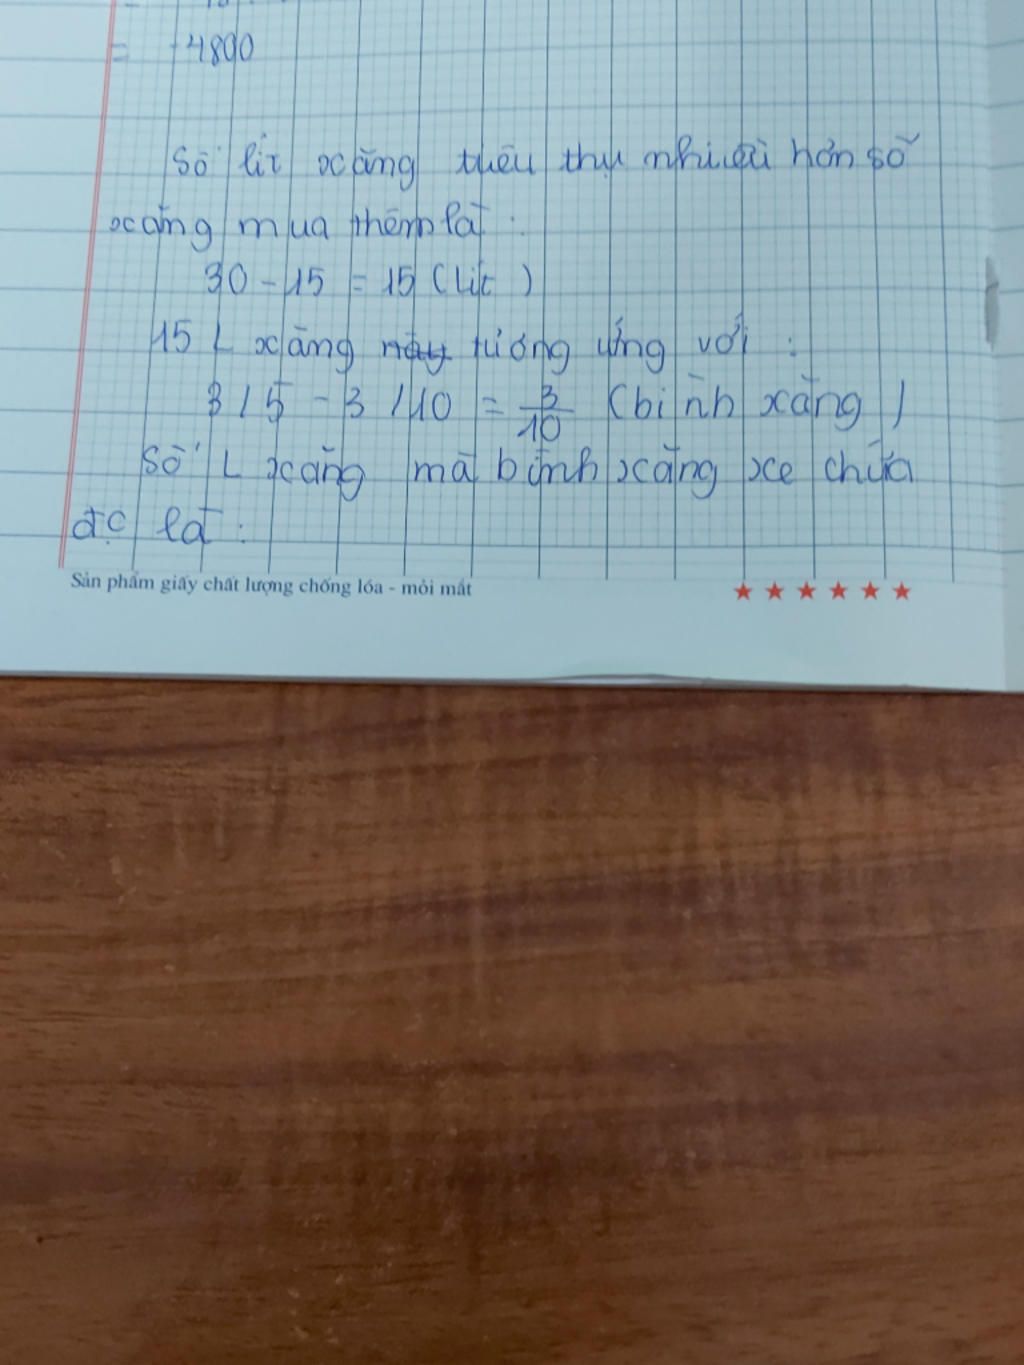 = -4800
Số lít xăng tiêu thụ nhiều hơn số
xăng mua thêm là :
30 - 15 = 15 (lít)
15 L xăng này tương ứng với :
3/5 - 3/10 = 3/10 (bình xăng)
Số L xăng mà bình xăng xe chứa
đc là :
Sản phẩm giấy chất lượng chống lóa - mỏi mắt